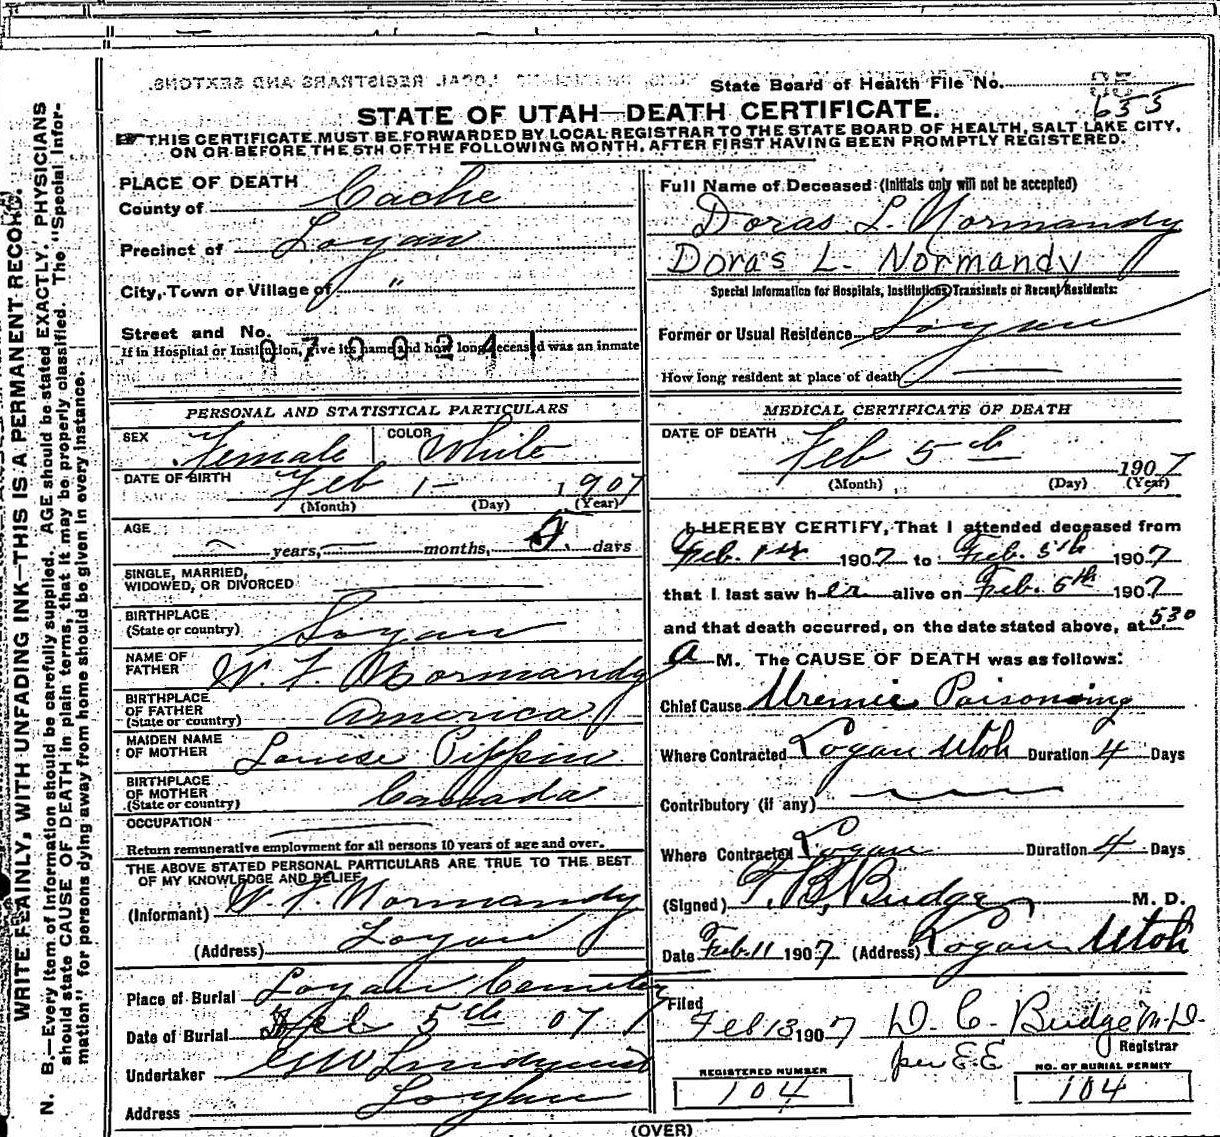 State Board of Health File No.
635
STATE OF UTAH—DEATH CERTIFICATE.
THIS CERTIFICATE MUST BE FORWARDED BY LOCAL REGISTRAR TO THE STATE BOARD OF HEALTH, SALT LAKE CITY,
ON OR BEFORE THE 5TH OF THE FOLLOWING MONTH, AFTER FIRST HAVING BEEN PROMPTLY REGISTERED.
WRITE PLAINLY, WITH UNFADING INK—THIS IS A PERMANENT RECORD.
N. B.—Every item of information should be carefully supplied. AGE should be stated EXACTLY. PHYSICIANS
should state CAUSE OF DEATH in plain terms, that it may be properly classified. The "Special Infor-
mation" for persons dying away from home should be given in every instance.
PLACE OF DEATH
County of Cache
Precinct of Logan
City, Town or Village of "
Street and No.
If in Hospital or Institution, give its name and how long deceased was an inmate
0700241
PERSONAL AND STATISTICAL PARTICULARS
SEX Female COLOR White
DATE OF BIRTH Feb 1- 1907
(Month) (Day) (Year)
AGE
years, months, days
SINGLE, MARRIED,
WIDOWED, OR DIVORCED
BIRTHPLACE
(State or country) Logan
NAME OF
FATHER W. F. Normandy
BIRTHPLACE
OF FATHER
(State or country) America
MAIDEN NAME
OF MOTHER Louise
BIRTHPLACE
OF MOTHER
(State or country) Canada
OCCUPATION
Return remunerative employment for all persons 10 years of age and over.
THE ABOVE STATED PERSONAL PARTICULARS ARE TRUE TO THE BEST
OF MY KNOWLEDGE AND BELIEF
(Informant) W. F. Normandy
(Address) Logan
Place of Burial Logan Cemetery
Date of Burial Feb 5th 07
Undertaker
Address Logan
Full Name of Deceased (Initials only will not be accepted)
Doras L. Normandy
Doras L. Normandy
Special Information for Hospitals, Institutions, Transients or Recent Residents:
Former or Usual Residence Logan
How long resident at place of death
MEDICAL CERTIFICATE OF DEATH
DATE OF DEATH Feb 5th 1907
(Month) (Day) (Year)
I HEREBY CERTIFY, That I attended deceased from
Feb. 1st 1907 to Feb. 5th 1907
that I last saw her alive on Feb. 5th 1907
and that death occurred, on the date stated above, at 530
a M. The CAUSE OF DEATH was as follows:
Chief Cause Uremic Poisoning
Where Contracted Logan Utah Duration 4 Days
Contributory (if any)
Where Contracted Logan Duration 4 Days
(Signed) T. B. Budge M. D.
Date Feb. 11 1907 (Address) Logan Utah
Filed
Feb 13 1907 D. C. Budge M.D.
Registrar
per E.E
REGISTERED NUMBER NO. OF BURIAL PERMIT
104 104
(OVER)